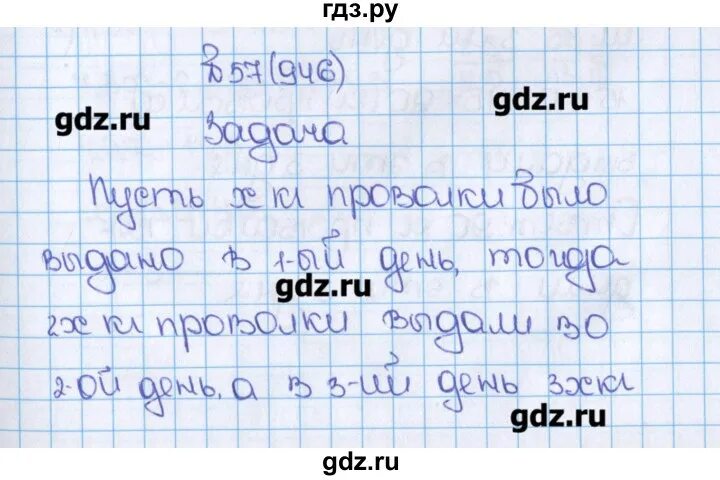 гдз.ру
№57(946)
gdz.ru
gdz.ru
Задача
Пусть х кг проволки было
выдано в 1-ый день, тогда
gdz.ru
2х кг проволки выдали во
2-ой день, а в 3-ий день 3х кг
gdz.ru
gdz.ru